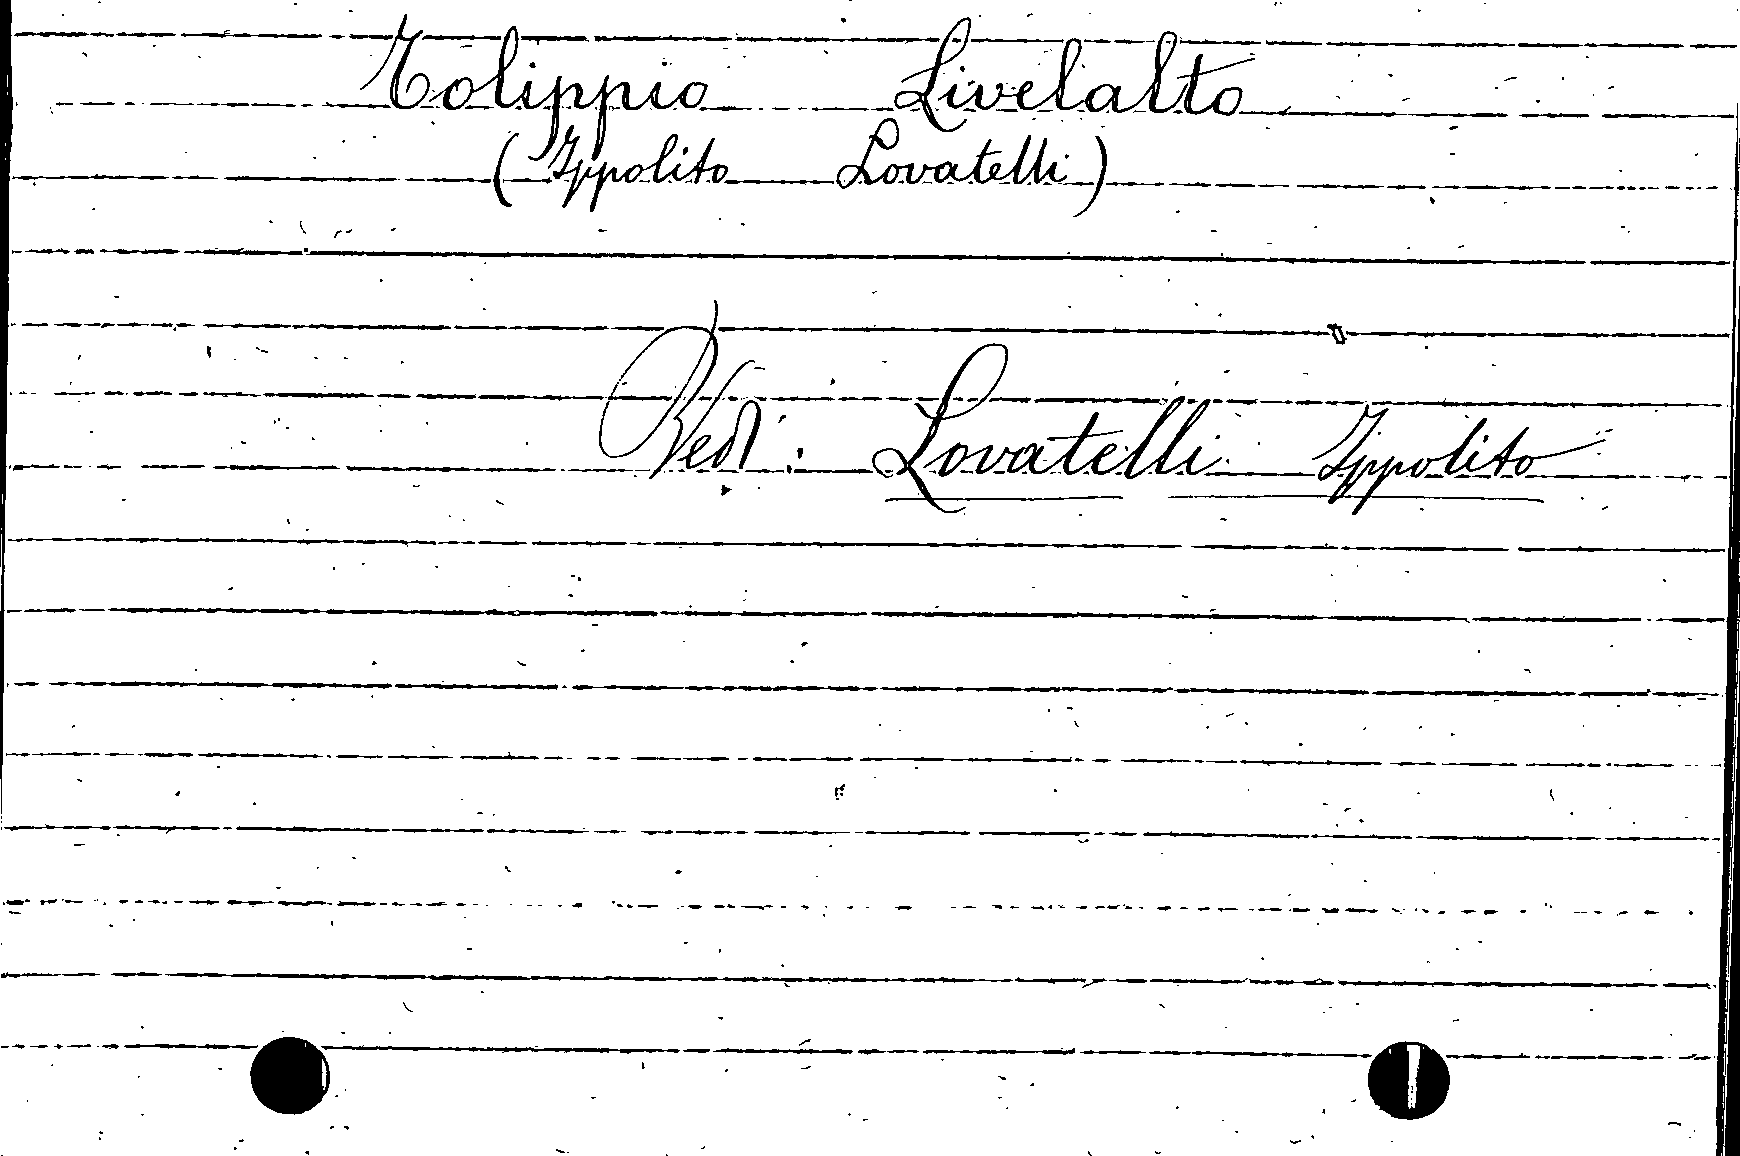 Tolippio Livelalto
(Ippolito Lovatelli)
Vedi: Lovatelli Ippolito